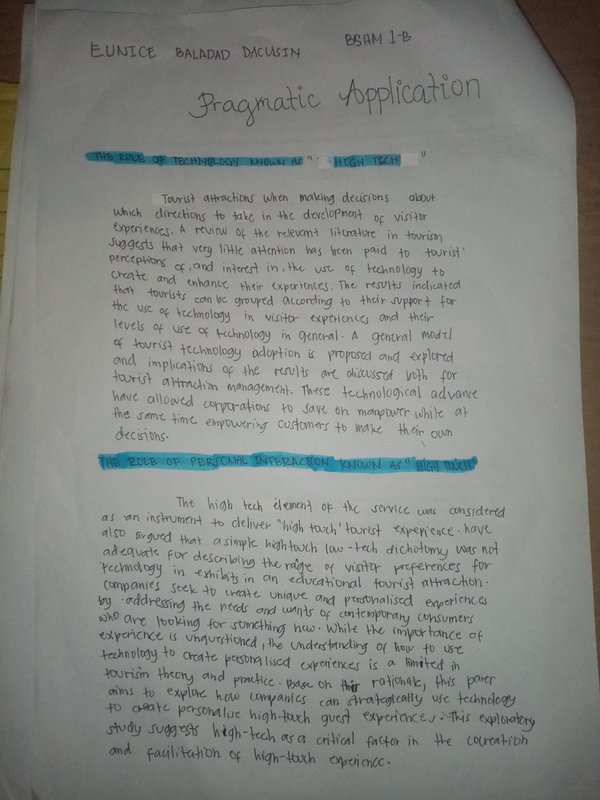 EUNICE BALADAD DACUSIN BSHM 1-B
Pragmatic Application
THE ROLE OF TECHNOLOGY KNOWN AS " HIGH TECH "
Tourist attractions when making decisions about
which directions to take in the development of visitor
experiences. A review of the relevant literature in tourism
suggests that very little attention has been paid to tourist'
perceptions of, and interest in, the use of technology to
create and enhance their experiences. The results indicated
that tourists can be grouped according to their support for
the use of technology in visitor experiences and their
levels of use of technology in general. A general model
of tourist technology adoption is proposed and explored
and implications of the results are discussed both for
tourist attraction management. These technological advance
have allowed corporations to save on manpower while at
the same time empowering customers to make their own
decisions.
THE ROLE OF PERSONAL INTERACTION KNOWN AS "HIGH TOUCH"
The high tech element of the service was considered
as an instrument to deliver "high touch' tourist experience. have
also argued that a simple hightouch low-tech dichotomy was not
adequate for describing the range of visitor preferences for
technology in exhibits in an educational tourist attraction.
companies seek to create unique and personalised experiences
by addressing the needs and wants of contemporary consumers
who are looking for something new. While the importance of
experience is unquestioned, the understanding of how to use
technology to create personalised experiences is a limited in
tourism theory and practice. Base on this rationale, this paper
aims to explore how companies can strategically use technology
to create personalise high-touch guest experiences. This exploratory
study suggests high-tech as a critical factor in the cocreation
and facilitation of high-touch experience.